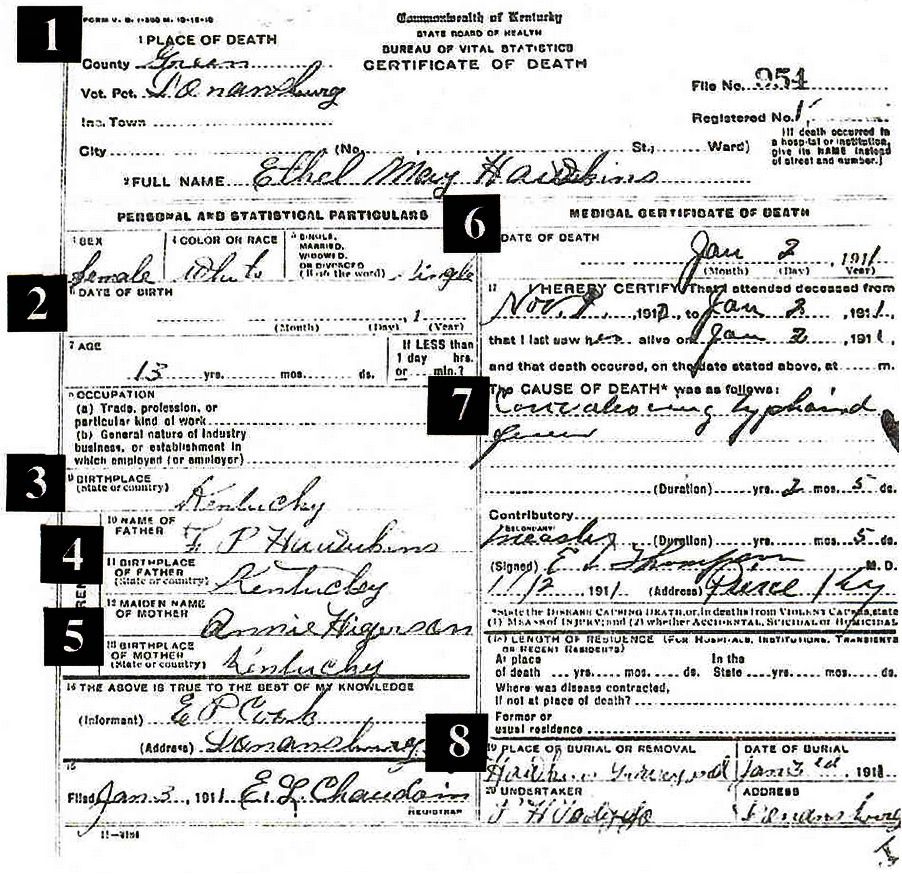 1
FORM V. S. 1-500 M. 10-18-10
Commonwealth of Kentucky
STATE BOARD OF HEALTH
BUREAU OF VITAL STATISTICS
CERTIFICATE OF DEATH
1 PLACE OF DEATH
County Green
Vot. Pct. Donansburg
Inc. Town
City (No. St.; Ward)
File No. 954
Registered No. 1
(If death occurred in
a hospital or institution,
give its NAME instead
of street and number.)
2 FULL NAME Ethel May Hawkins
PERSONAL AND STATISTICAL PARTICULARS
3 SEX
female
4 COLOR OR RACE
White
5 SINGLE,
MARRIED,
WIDOWED,
OR DIVORCED
(Write the word) Single
2
6 DATE OF BIRTH
(Month) (Day) , 1 (Year)
7 AGE
13 yrs. mos. ds.
If LESS than
1 day hrs.
or min.?
8 OCCUPATION
(a) Trade, profession, or
particular kind of work
(b) General nature of industry
business, or establishment in
which employed (or employer)
3
9 BIRTHPLACE
(State or country)
Kentucky
4
10 NAME OF
FATHER
P Hawkins
11 BIRTHPLACE
OF FATHER
(State or country)
Kentucky
5
12 MAIDEN NAME
OF MOTHER
Annie Higerson
13 BIRTHPLACE
OF MOTHER
(State or country)
Kentucky
14 THE ABOVE IS TRUE TO THE BEST OF MY KNOWLEDGE
(Informant) E P Cook
(Address) Donansburg
15
Filed Jan 3, 1911 E. L. Chaudoin
REGISTRAR
11-3184
6
MEDICAL CERTIFICATE OF DEATH
DATE OF DEATH
Jan 2, 1911
(Month) (Day) Year)
17 I HEREBY CERTIFY, That I attended deceased from
Nov. , 191 , to Jan 2, 1911,
that I last saw her alive on Jan 2, 1911,
and that death occurred, on the date stated above, at m.
7
The CAUSE OF DEATH* was as follows:
Convalescing typhoid
fever
(Duration) yrs. 2 mos. 5 ds.
Contributory
SECONDARY
measles (Duration) yrs. mos. 5 ds.
(Signed) E L Thompson M. D.
1/2, 1911 (Address) Pierce Ky
*State the DISEASE CAUSING DEATH, or, in deaths from VIOLENT CAUSES, state
(1) MEANS of INJURY; and (2) whether ACCIDENTAL, SUICIDAL or HOMICIDAL
(18) LENGTH OF RESIDENCE (FOR HOSPITALS, INSTITUTIONS, TRANSIENTS
OR RECENT RESIDENTS)
At place In the
of death yrs. mos. ds. State yrs. mos. ds.
Where was disease contracted,
if not at place of death?
Former or
usual residence
8
19 PLACE OF BURIAL OR REMOVAL
Graveyard
DATE OF BURIAL
Jan 3rd, 1911
20 UNDERTAKER
ADDRESS
Donansburg